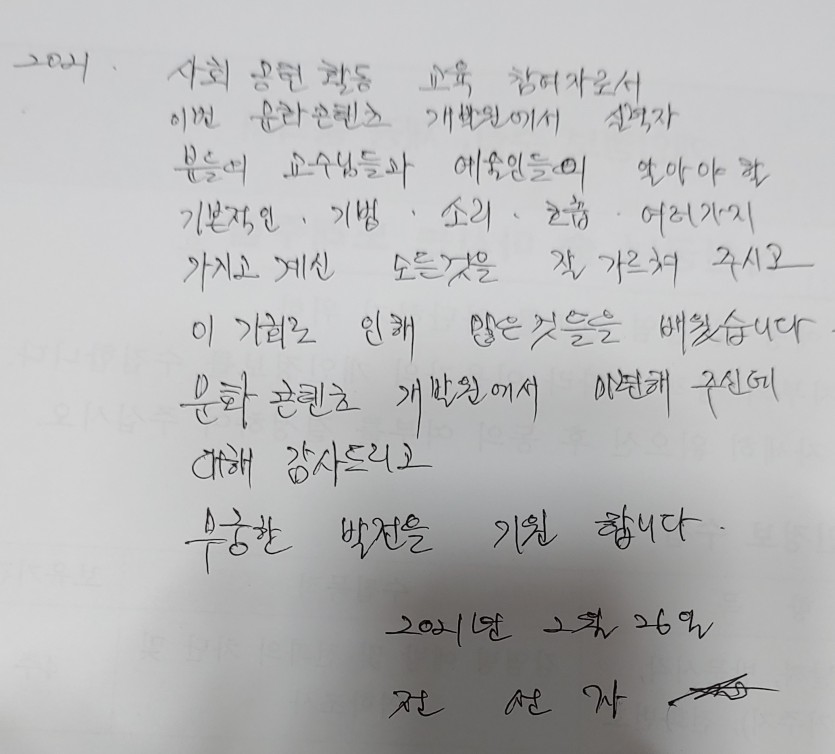 2021. 사회 공헌 활동 교육 참여자로서
이번 문화콘텐츠 개발원에서 실력자
분들의 교수님들과 예술인들의 알아야 할
기본적인 · 기법 · 소리 · 호흡 · 여러가지
가지고 계신 모든것을 잘 가르쳐 주시고
이 기회로 인해 많은것들을 배웠습니다.
문화 콘텐츠 개발원에서 마련해 주신데
대해 감사드리고
무궁한 발전을 기원 합니다.
2021년 2월 26일
전 선 자